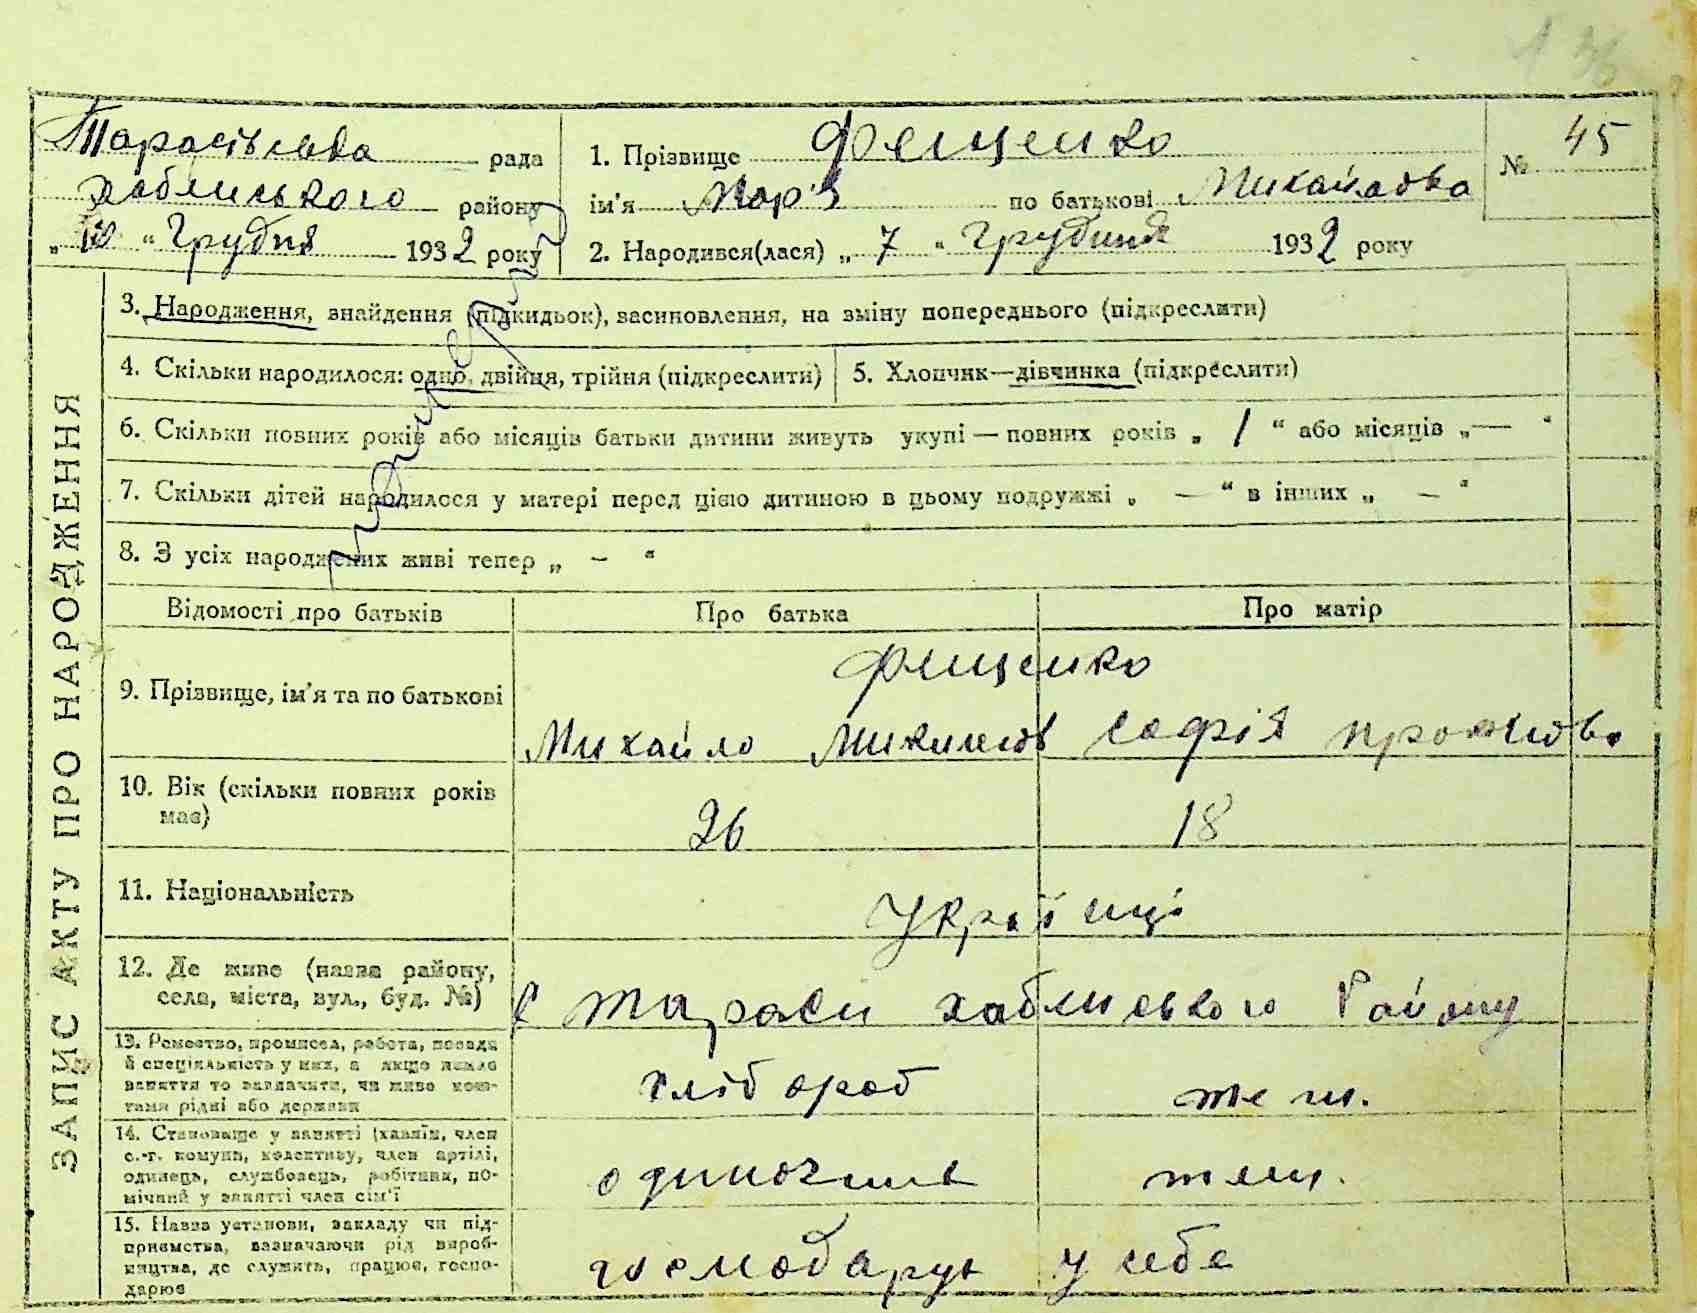 136
Тарасівська рада
Хабенського району
„10“ Грудня 1932 року
1. Прізвище Фещенко
ім'я Мар'я по батькові Михайлова
№ 45
2. Народився(лася) „7“ Грудня 1932 року
ЗАПИС АКТУ ПРО НАРОДЖЕННЯ
3. Народження, знайдення (підкидьок), засиновлення, на зміну попереднього (підкреслити)
4. Скільки народилося: одно, двійця, трійня (підкреслити)
5. Хлопчик—дівчинка (підкреслити)
6. Скільки повних років або місяців батьки дитини живуть укупі — повних років „ 1 “ або місяців „—“
7. Скільки дітей народилося у матері перед цією дитиною в цьому подружжі „ — “ в інших „ — “
8. З усіх народжених живі тепер „ — “
Відомості про батьків
Про батька
Про матір
9. Прізвище, ім'я та по батькові
Фещенко
Михайло
Софія
10. Вік (скільки повних років
має)
26
18
11. Національність
Українці
12. Де живе (назва району,
села, міста, вул., буд. №)
Хабенського Району
13. Ремество, промисел, робота, посада
й спеціяльність у них, а якщо немає
заняття то зазначити, чи живе кош-
тами рідні або держави
хлібороб
теж.
14. Становище у занятті (хазяїн, член
с.-г. комуни, колективу, член артілі,
одинець, службовець, робітник, по-
мічний у занятті член сім'ї
одиночник
теж.
15. Назва установи, закладу чи під-
приємства, зазначаючи рід вироб-
ництва, де служить, працює, госпо-
дарює
господарує у себе